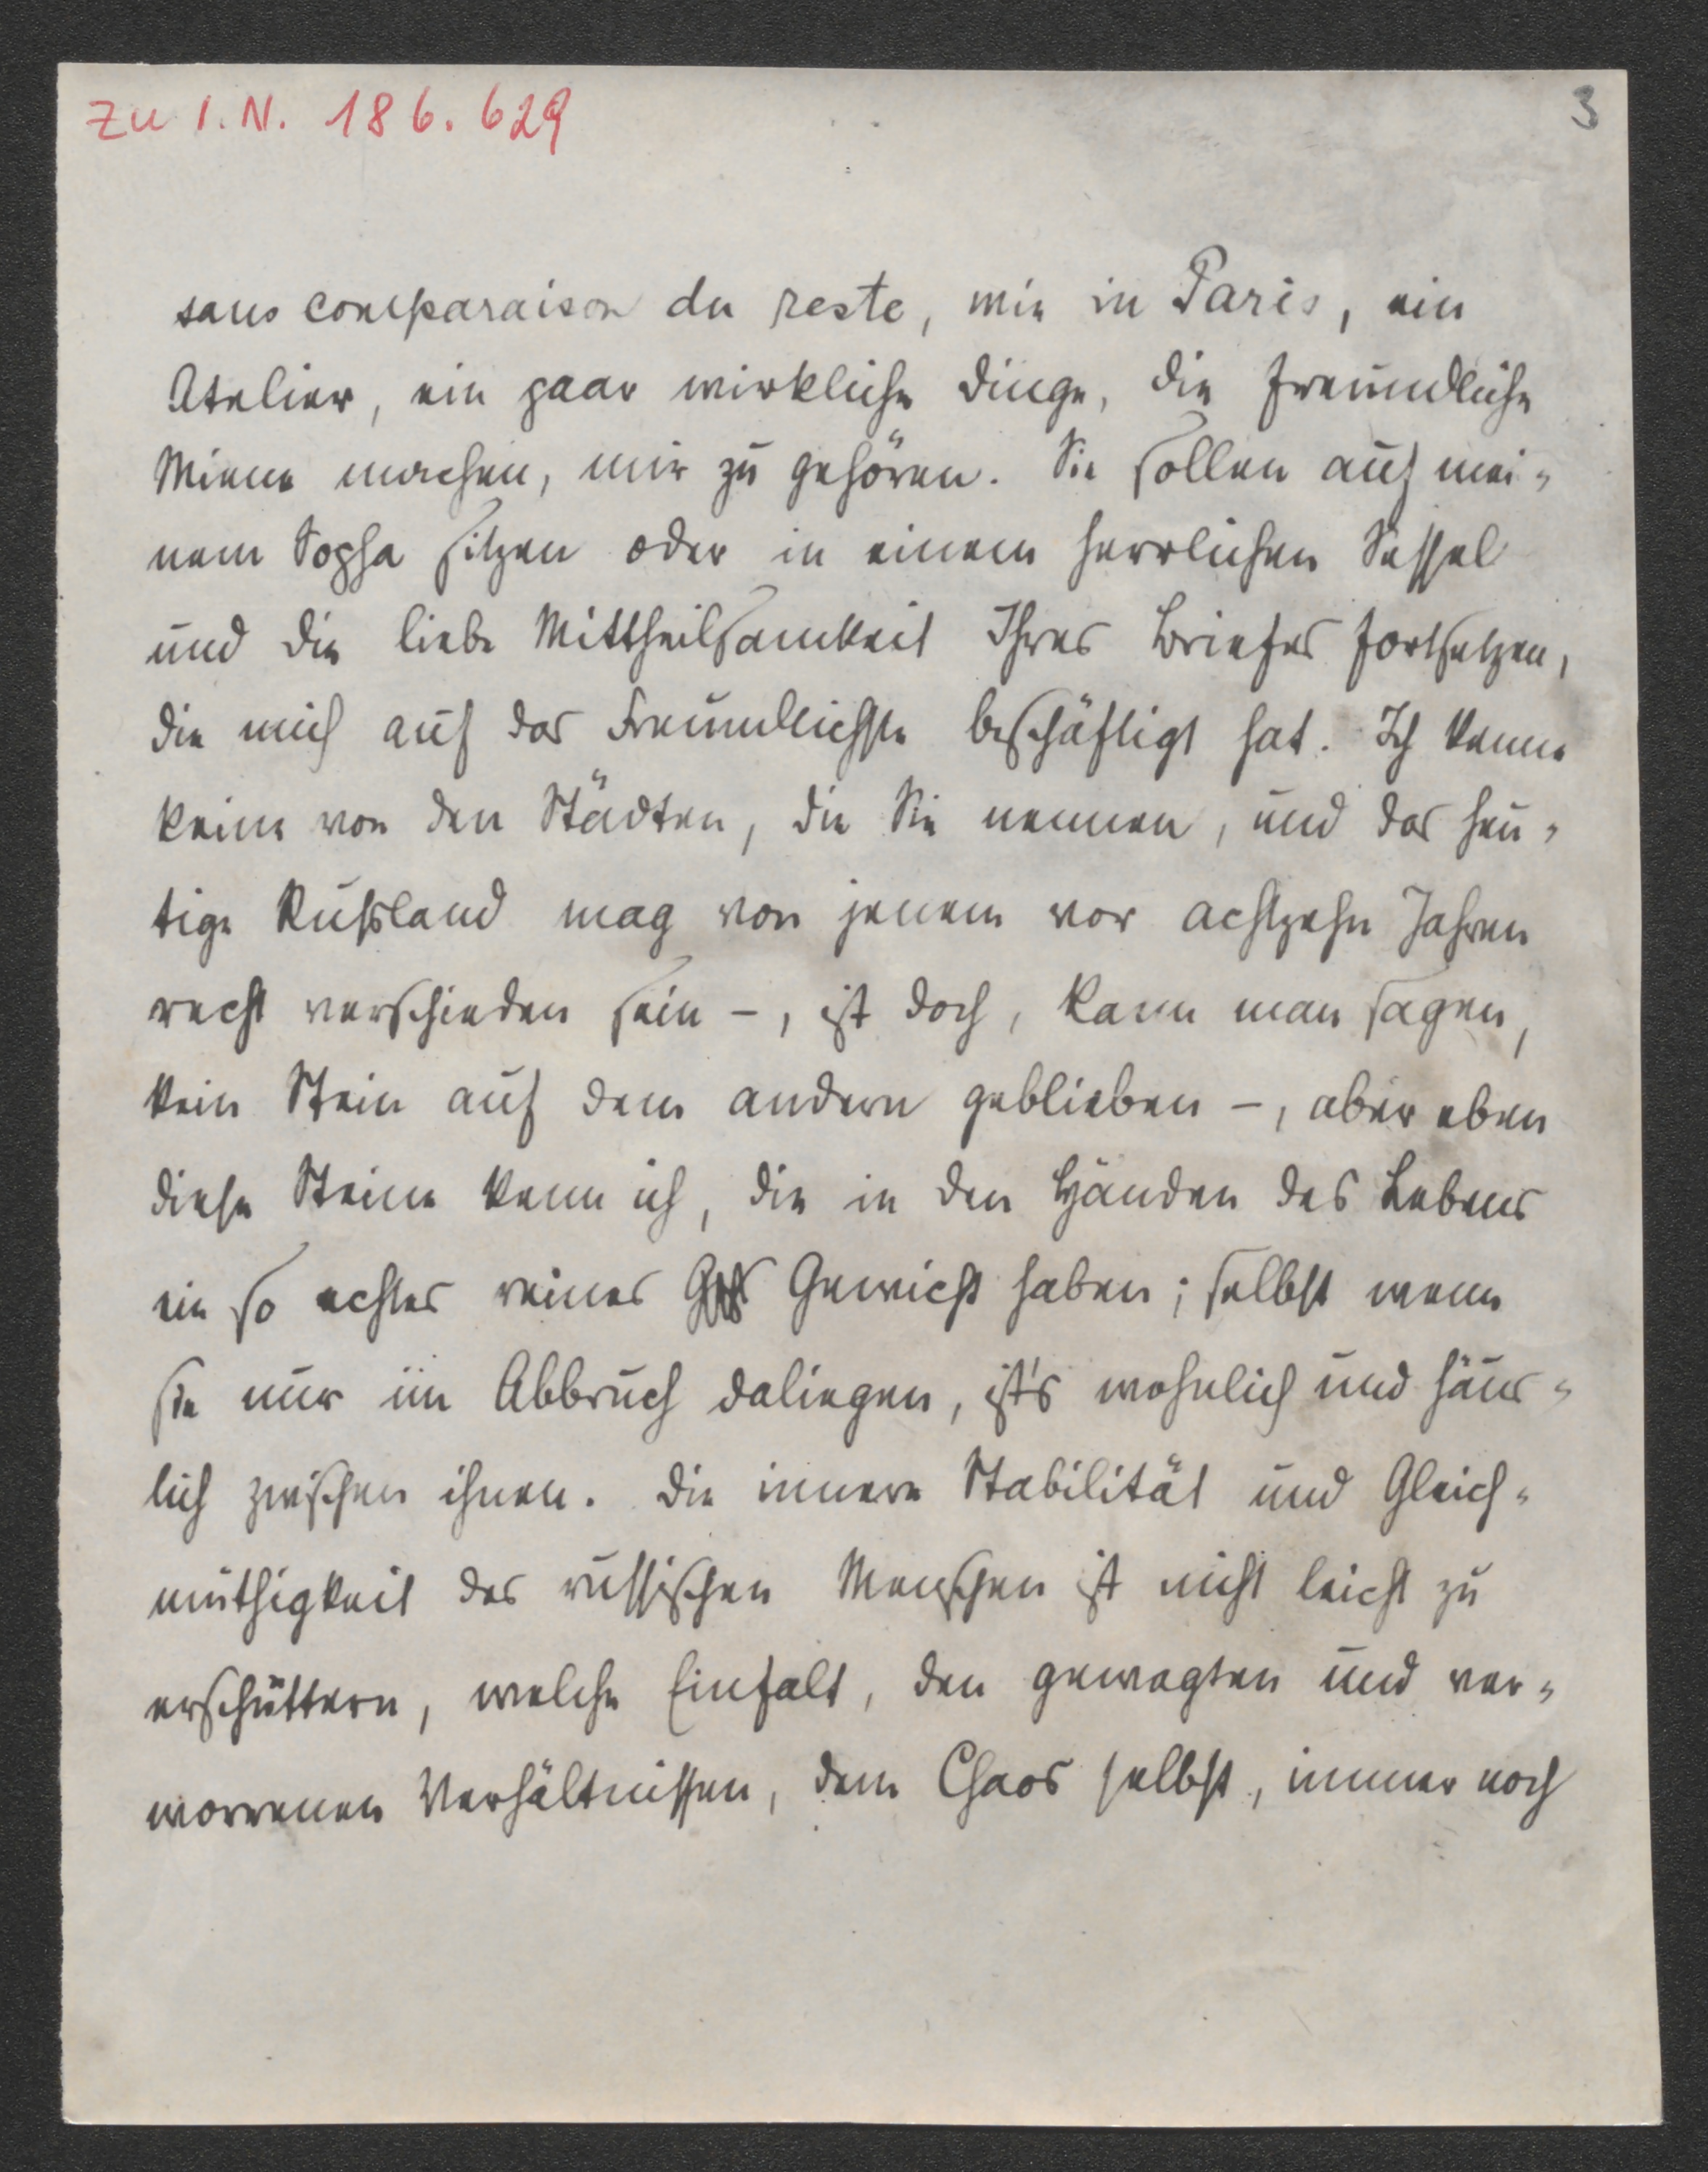 Zu I.N. 186.629
3
sans comparaison du reste, wie in Paris, ein
Atelier, ein paar wirkliche Dinge, die freundliche
Miene machen, mir zu gehören. Sie sollen auf mei=
nem Sopha sitzen oder in einem herrlichen Sessel
und die liebe Mittheilsamkeit Ihres Briefes fortsetzen,
die mich auf das Freundlichste beschäftigt hat. Ich kenne
keine von den Städten, die Sie nennen, und das heu=
tige Rußland mag von jenem vor achtzehn Jahren
recht verschieden sein –, ist doch, kann man sagen,
kein Stein auf dem andern geblieben –, aber eben
diese Steine kenn ich, die in den Händen des Lebens
ein so echtes reines Gewicht haben; selbst wenn
sie nur im Abbruch daliegen, ist's wohnlich und häus=
lich zwischen ihnen. Die innere Stabilität und Gleich=
müthigkeit des russischen Menschen ist nicht leicht zu
erschüttern, welche Einfalt, den gewagten und ver=
worrenen Verhältnissen, dem Chaos selbst, immer noch